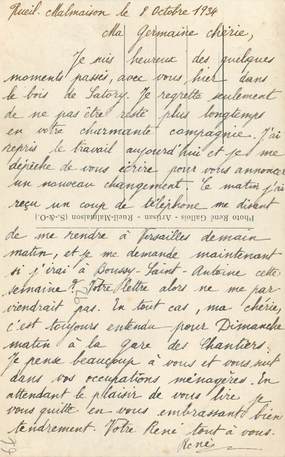 Rueil-Malmaison le 8 Octobre 1934
Ma Germaine chérie,
Je suis heureux des quelques
moments passés, avec vous hier dans
le bois de Satory. Je regrette seulement
de ne pas être resté plus longtemps
en votre charmante compagnie. J'ai
repris le travail aujourd'hui et je me
dépêche de vous écrire pour vous annoncer
un nouveau changement. Ce matin j'ai
reçu un coup de téléphone me disant
Photo René Gallois - Artisan - Rueil-Malmaison (S.-&-O.)
de me rendre à Versailles demain
matin, et je me demande maintenant
si j'irai à Boussy-Saint-Antoine cette
semaine ? Votre lettre alors ne me par-
viendrait pas. En tout cas, ma chérie,
c'est toujours entendu pour Dimanche
matin à la Gare des Chantiers.
Je pense beaucoup à vous et vous suit
dans vos occupations ménagères. En
attendant le plaisir de vous lire je
vous quitte en vous embrassant bien
tendrement. Votre René tout à vous.
René